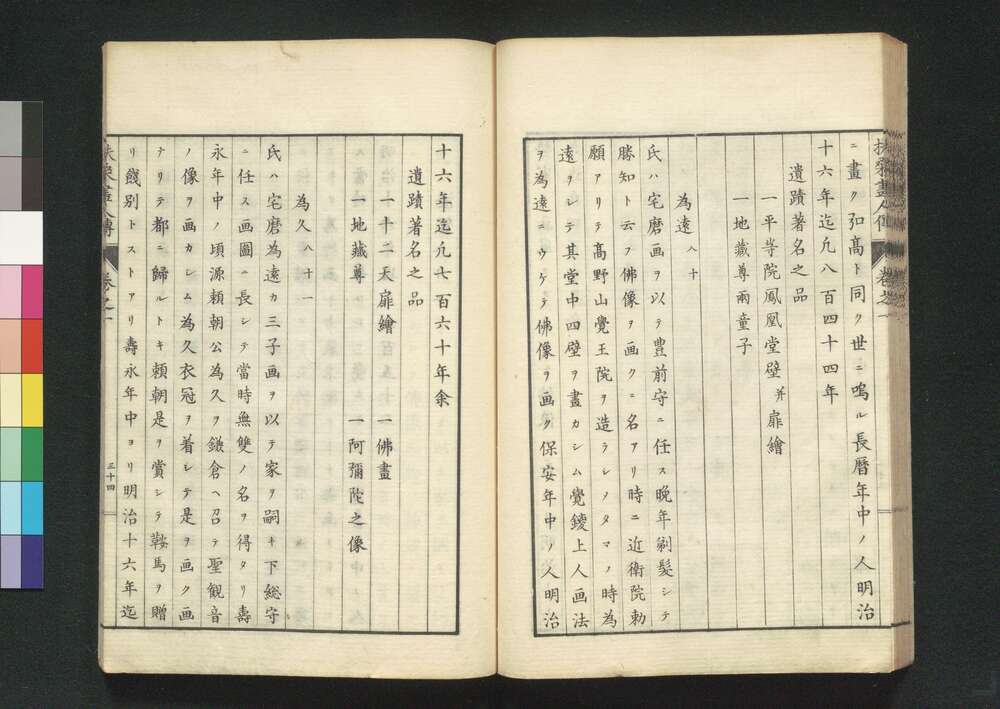 扶桑畫人傳
卷之一
ニ畫ク弘高ト同ク世ニ鳴ル長曆年中ノ人明治
十六年迄凡八百四十四年
遺蹟著名之品
一平等院鳳凰堂壁并扉繪
一地藏尊兩童子
為遠 八十
氏ハ宅磨画ヲ以テ豊前守ニ任ス晩年剃髮シテ
勝知ト云フ佛像ヲ画クニ名アリ時ニ近衛院勅
願アリテ髙野山覺王院ヲ造ラレタマノ時為
遠ヲシテ其堂中四壁ヲ畫カシム覺鑁上人画法
ヲ為遠ニウケテ佛像ヲ画ク保安年中ノ人明治
十六年迄凡七百六十年余
遺蹟著名之品
一十二天扉繪 一佛畫
一地藏尊 一阿彌陀之像
為久 八十一
氏ハ宅磨為遠カ三子画ヲ以テ家ヲ嗣キ下総守
ニ任ス画圖ニ長シテ當時無雙ノ名ヲ得タリ壽
永年中ノ頃源頼朝公為久ヲ鎌倉ヘ召テ聖観音
ノ像ヲ画カシム為久衣冠ヲ着シテ是ヲ画ク画
ナリテ都ニ歸ルトキ頼朝是ヲ賞シテ鞍馬ヲ贈
リ餞別トストアリ壽永年中ヨリ明治十六年迄
扶桑畫人傳
卷之一
三十四